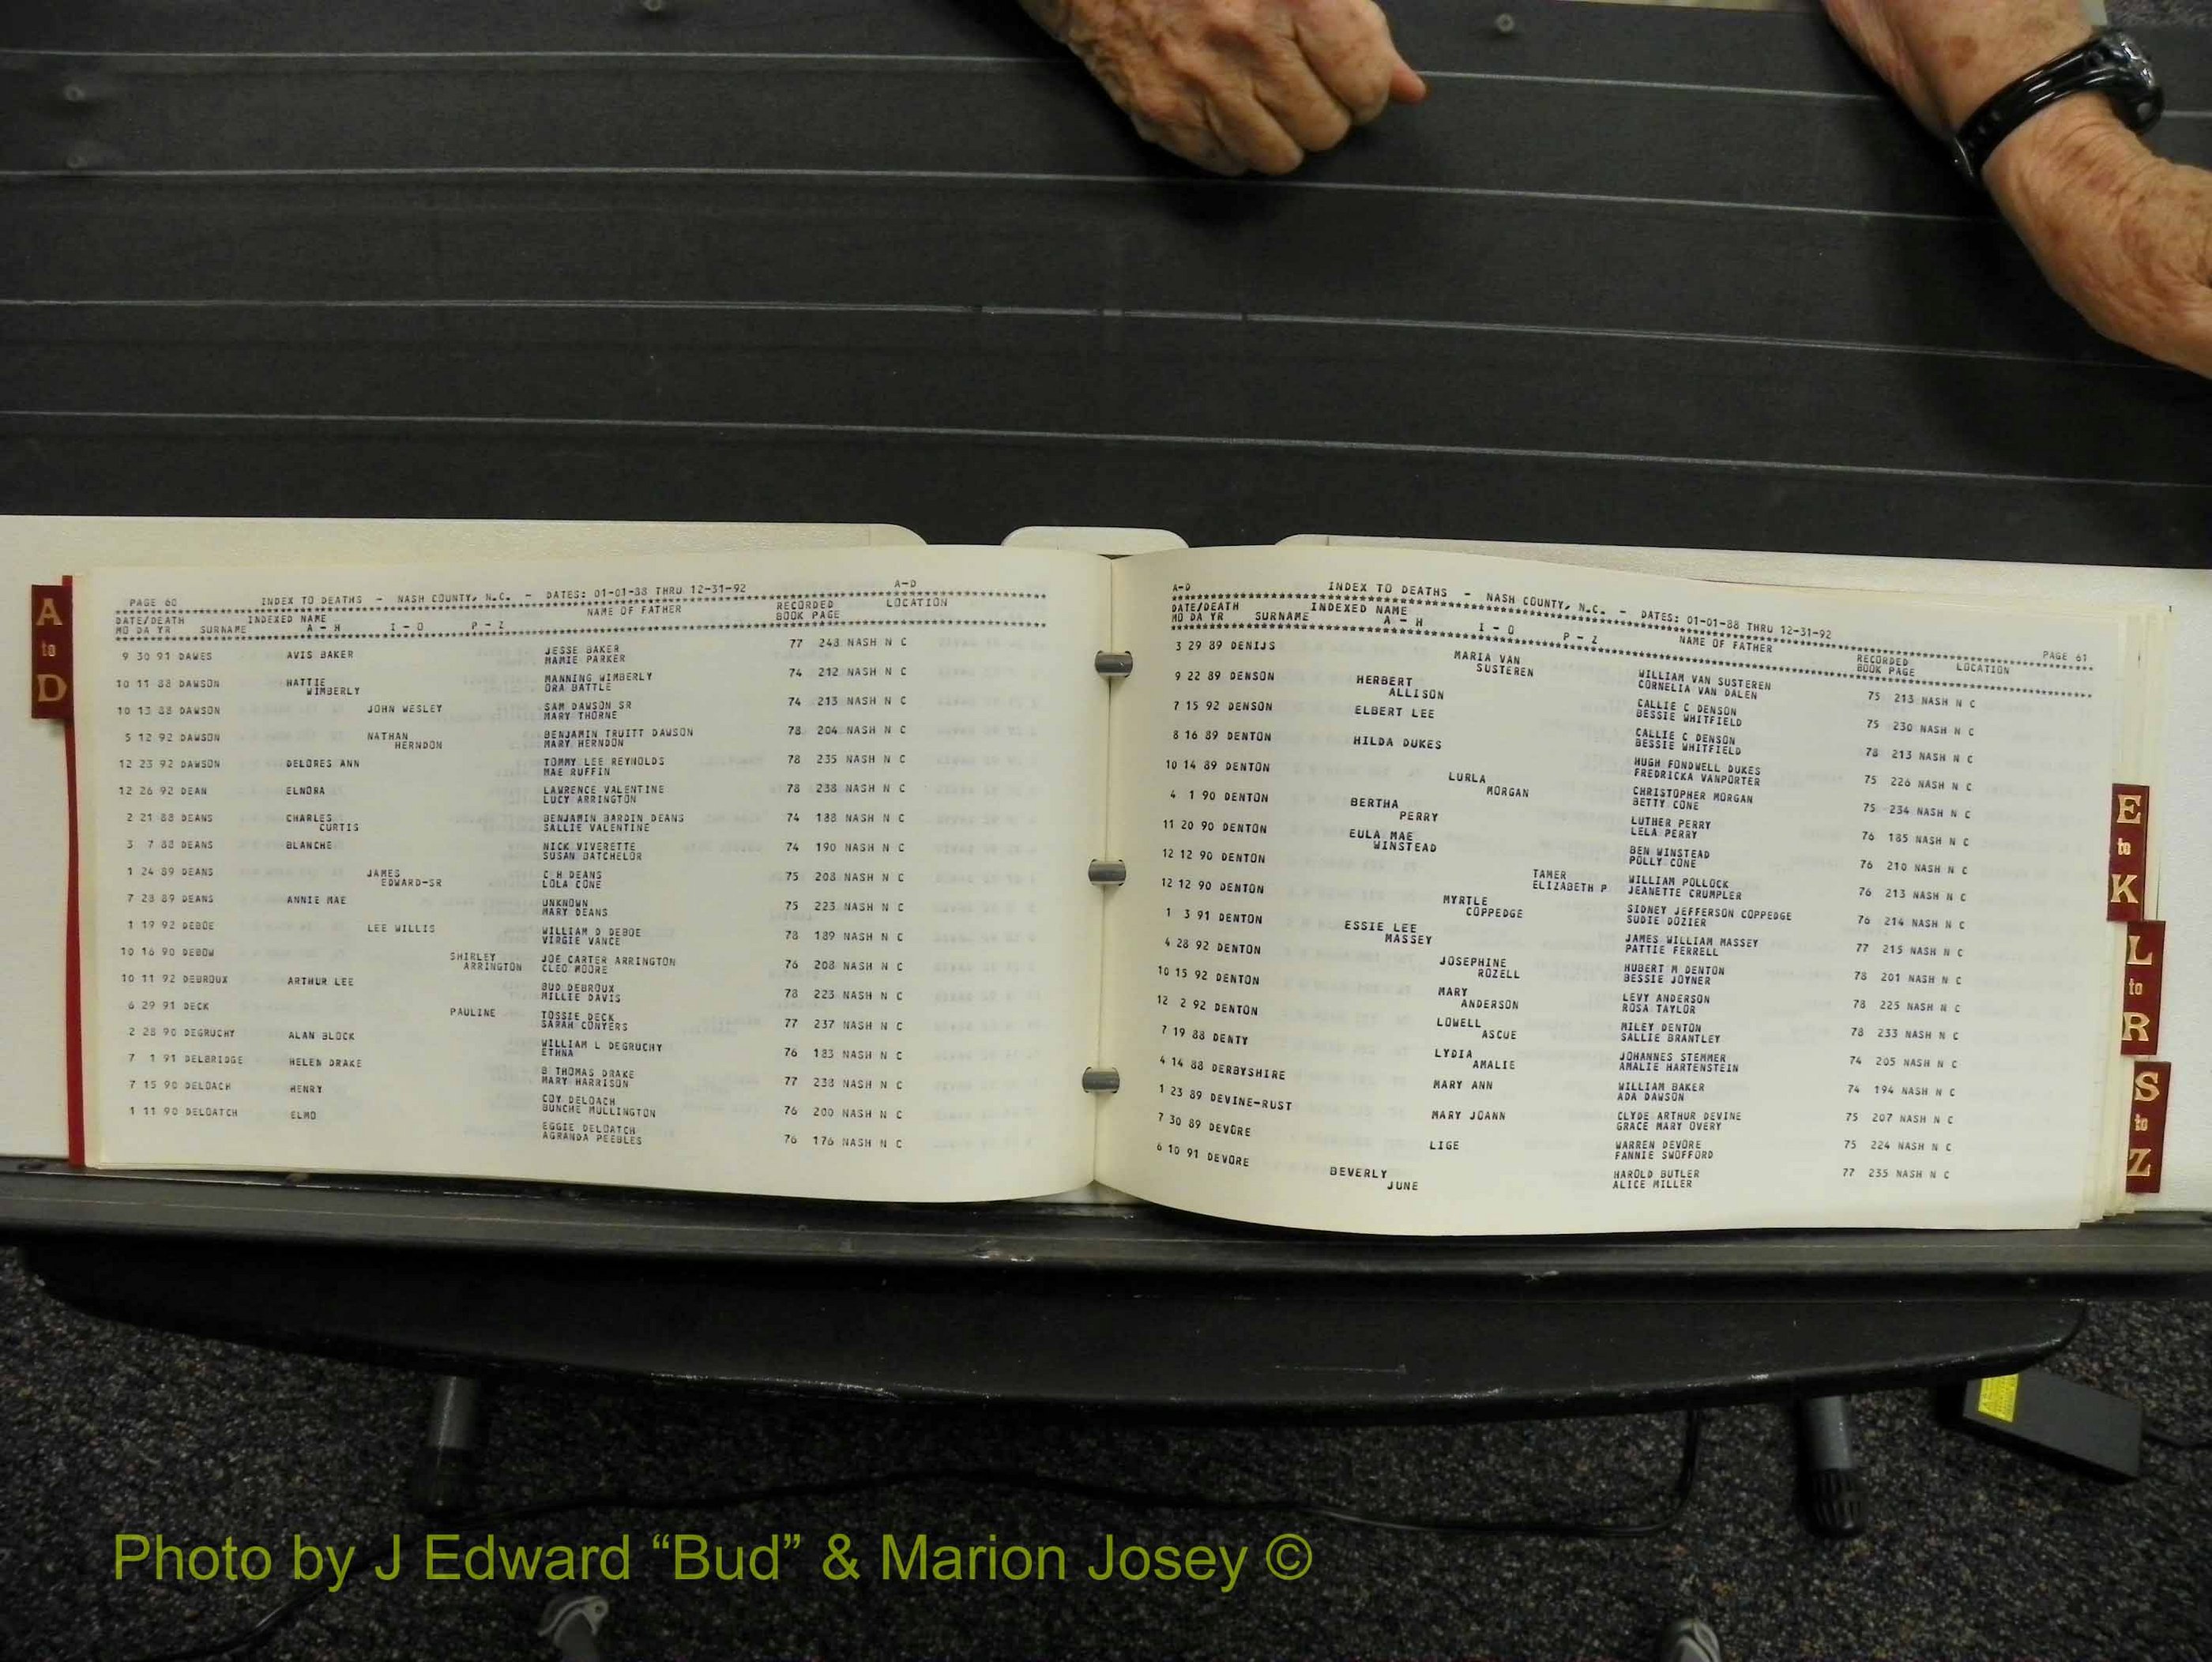 A
to
D
PAGE 60 INDEX TO DEATHS - NASH COUNTY, N.C. - DATES: 01-01-88 THRU 12-31-92 A-D
DATE/DEATH INDEXED NAME NAME OF FATHER RECORDED LOCATION
MO DA YR SURNAME A - H I - O P - Z BOOK PAGE
9 30 91 DAWES AVIS BAKER JESSE BAKER 77 248 NASH N C
MAMIE PARKER
10 11 88 DAWSON HATTIE MANNING WIMBERLY 74 212 NASH N C
WIMBERLY ORA BATTLE
10 13 88 DAWSON JOHN WESLEY SAM DAWSON SR 74 213 NASH N C
MARY THORNE
5 12 92 DAWSON NATHAN BENJAMIN TRUITT DAWSON 78 204 NASH N C
HERNDON MARY HERNDON
12 23 92 DAWSON DELORES ANN TOMMY LEE REYNOLDS 78 235 NASH N C
MAE RUFFIN
12 26 92 DEAN ELNORA LAWRENCE VALENTINE 78 238 NASH N C
LUCY ARRINGTON
2 21 88 DEANS CHARLES BENJAMIN BARDIN DEANS 74 188 NASH N C
CURTIS SALLIE VALENTINE
3 7 88 DEANS BLANCHE NICK VIVERETTE 74 190 NASH N C
SUSAN BATCHELOR
1 24 89 DEANS JAMES C H DEANS 75 208 NASH N C
EDWARD-SR LOLA CONE
7 28 89 DEANS ANNIE MAE UNKNOWN 75 223 NASH N C
MARY DEANS
1 19 92 DEBOE LEE WILLIS WILLIAM D DEBOE 78 189 NASH N C
VIRGIE VANCE
10 16 90 DEBOW SHIRLEY JOE CARTER ARRINGTON 76 208 NASH N C
ARRINGTON CLEO MOORE
10 11 92 DEBROUX ARTHUR LEE BUD DEBROUX 78 223 NASH N C
MILLIE DAVIS
6 29 91 DECK PAULINE TOSSIE DECK 77 237 NASH N C
SARAH CONYERS
2 28 90 DEGRUCHY ALAN BLOCK WILLIAM L DEGRUCHY 76 183 NASH N C
ETHNA
7 1 91 DELBRIDGE HELEN DRAKE B THOMAS DRAKE 77 238 NASH N C
MARY HARRISON
7 15 90 DELOACH HENRY COY DELOACH 76 200 NASH N C
BUNCHE MULLINGTON
1 11 90 DELOATCH ELMO EGGIE DELOATCH 76 176 NASH N C
AGRANDA PEEBLES
A-D INDEX TO DEATHS - NASH COUNTY, N.C. - DATES: 01-01-88 THRU 12-31-92 PAGE 61
DATE/DEATH INDEXED NAME NAME OF FATHER RECORDED LOCATION
MO DA YR SURNAME A - H I - O P - Z BOOK PAGE
3 29 89 DENIJS MARIA VAN WILLIAM VAN SUSTEREN 75 213 NASH N C
SUSTEREN CORNELIA VAN DALEN
9 22 89 DENSON HERBERT CALLIE C DENSON 75 230 NASH N C
ALLISON BESSIE WHITFIELD
7 15 92 DENSON ELBERT LEE CALLIE C DENSON 78 213 NASH N C
BESSIE WHITFIELD
8 16 89 DENTON HILDA DUKES HUGH FONDWELL DUKES 75 226 NASH N C
FREDRICKA VANPORTER
10 14 89 DENTON LURLA CHRISTOPHER MORGAN 75 234 NASH N C
MORGAN BETTY CONE
4 1 90 DENTON BERTHA LUTHER PERRY 76 185 NASH N C
PERRY LELA PERRY
11 20 90 DENTON EULA MAE BEN WINSTEAD 76 210 NASH N C
WINSTEAD POLLY CONE
12 12 90 DENTON TAMER WILLIAM POLLOCK 76 213 NASH N C
ELIZABETH P JEANETTE CRUMPLER
12 12 90 DENTON MYRTLE SIDNEY JEFFERSON COPPEDGE 76 214 NASH N C
COPPEDGE SUDIE DOZIER
1 3 91 DENTON ESSIE LEE JAMES WILLIAM MASSEY 77 215 NASH N C
MASSEY PATTIE FERRELL
4 28 92 DENTON JOSEPHINE HUBERT M DENTON 78 201 NASH N C
ROZELL BESSIE JOYNER
10 15 92 DENTON MARY LEVY ANDERSON 78 225 NASH N C
ANDERSON ROSA TAYLOR
12 2 92 DENTON LOWELL MILEY DENTON 78 233 NASH N C
ASCUE SALLIE BRANTLEY
7 19 88 DENTY LYDIA JOHANNES STEMMER 74 205 NASH N C
AMALIE AMALIE HARTENSTEIN
4 14 88 DERBYSHIRE MARY ANN WILLIAM BAKER 74 194 NASH N C
ADA DAWSON
1 23 89 DEVINE-RUST MARY JOANN CLYDE ARTHUR DEVINE 75 207 NASH N C
GRACE MARY OVERY
7 30 89 DEVORE LIGE WARREN DEVORE 75 224 NASH N C
FANNIE SWOFFORD
6 10 91 DEVORE BEVERLY HAROLD BUTLER 77 235 NASH N C
JUNE ALICE MILLER
E
to
K
L
to
R
S
to
Z
Photo by J Edward “Bud” & Marion Josey ©